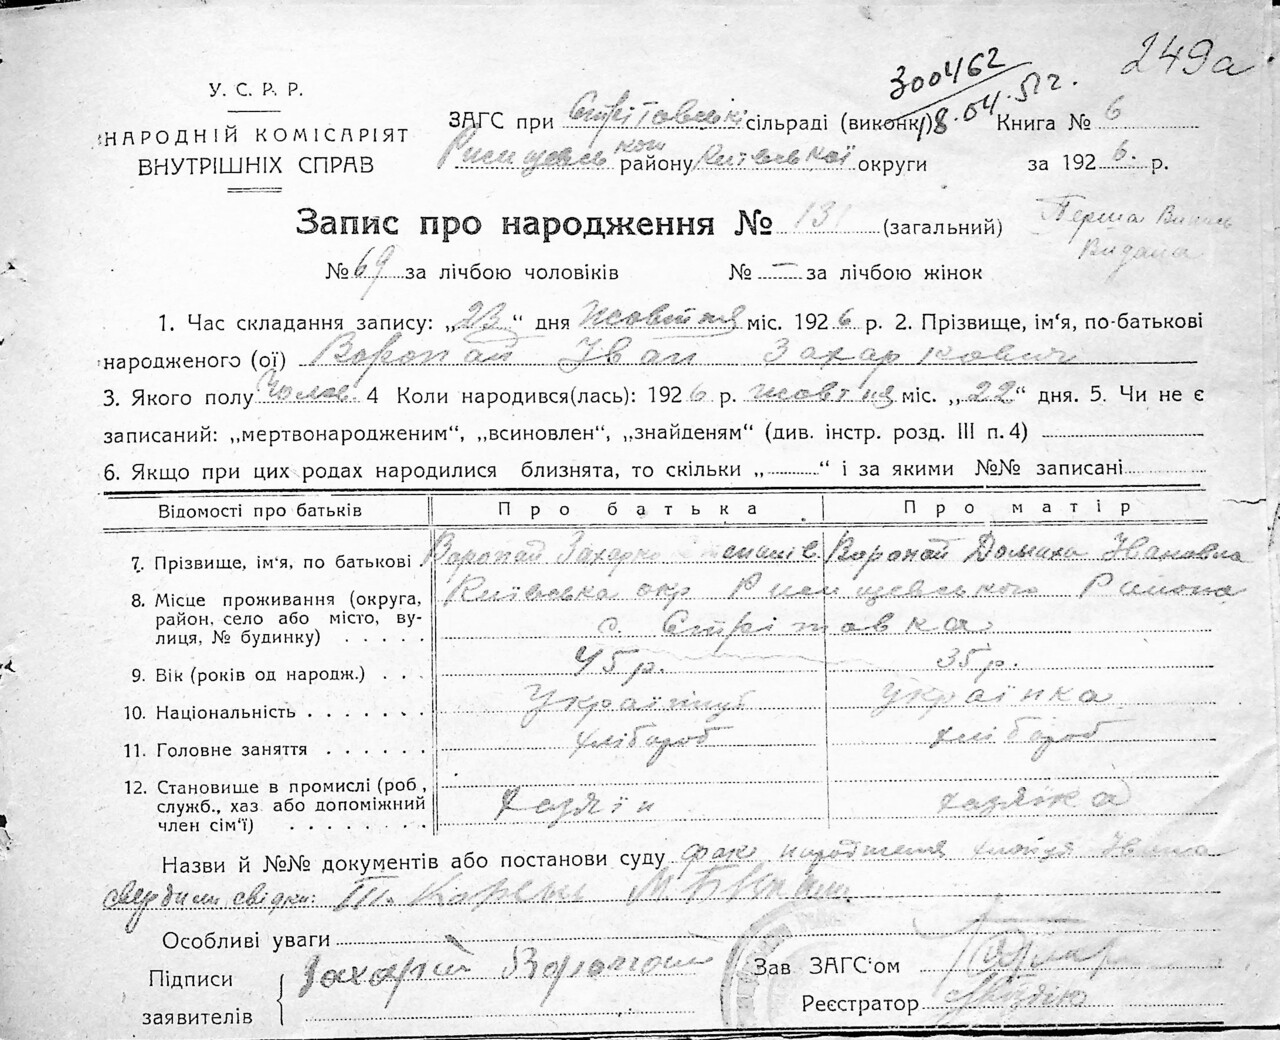 249а
300462
8.04.51г.
У. С. Р. Р.
НАРОДНІЙ КОМІСАРІЯТ
ВНУТРІШНІХ СПРАВ
ЗАГС при Стрітовські сільраді (виконк) Книга № 6
Рищевської району Київської округи за 1926 р.
Запис про народження № 131 (загальний)
Перша Випись
Видана
№ 69 за лічбою чоловіків № — за лічбою жінок
1. Час складання запису: „23“ дня жовтня міс. 1926 р. 2. Прізвище, ім‘я, по-батькові
народженого (ої) Воропай Іван Захаркович
3. Якого полу Чолов. 4 Коли народився(лась): 1926 р. жовтня міс. „22“ дня. 5. Чи не є
записаний: „мертвонародженим“, „всиновлен“, „знайденям“ (див. інстр. розд. III п. 4)
6. Якщо при цих родах народилися близнята, то скільки „ “ і за якими №№ записані
Відомості про батьків Про батька Про матір
7. Прізвище, ім‘я, по батькові Воропай Захарко Воропай Домаха Івановна
8. Місце проживання (округа, район, село або місто, вулиця, № будинку) Київська окр Рищевського Района
с. Стрітовка
9. Вік (років од народж.) 45 р. 35 р.
10. Національність Українець Українка
11. Головне заняття хлібороб хлібороб
12. Становище в промислі (роб., служб., хаз або допоміжний член сім‘ї) хазяїн хазяйка
Назви й №№ документів або постанови суду факт народження хлопця Івана
свердили свідки: Т.
Особливі уваги
Підписи
заявителів
Захарій Воропай
Зав ЗАГС‘ом
Реєстратор